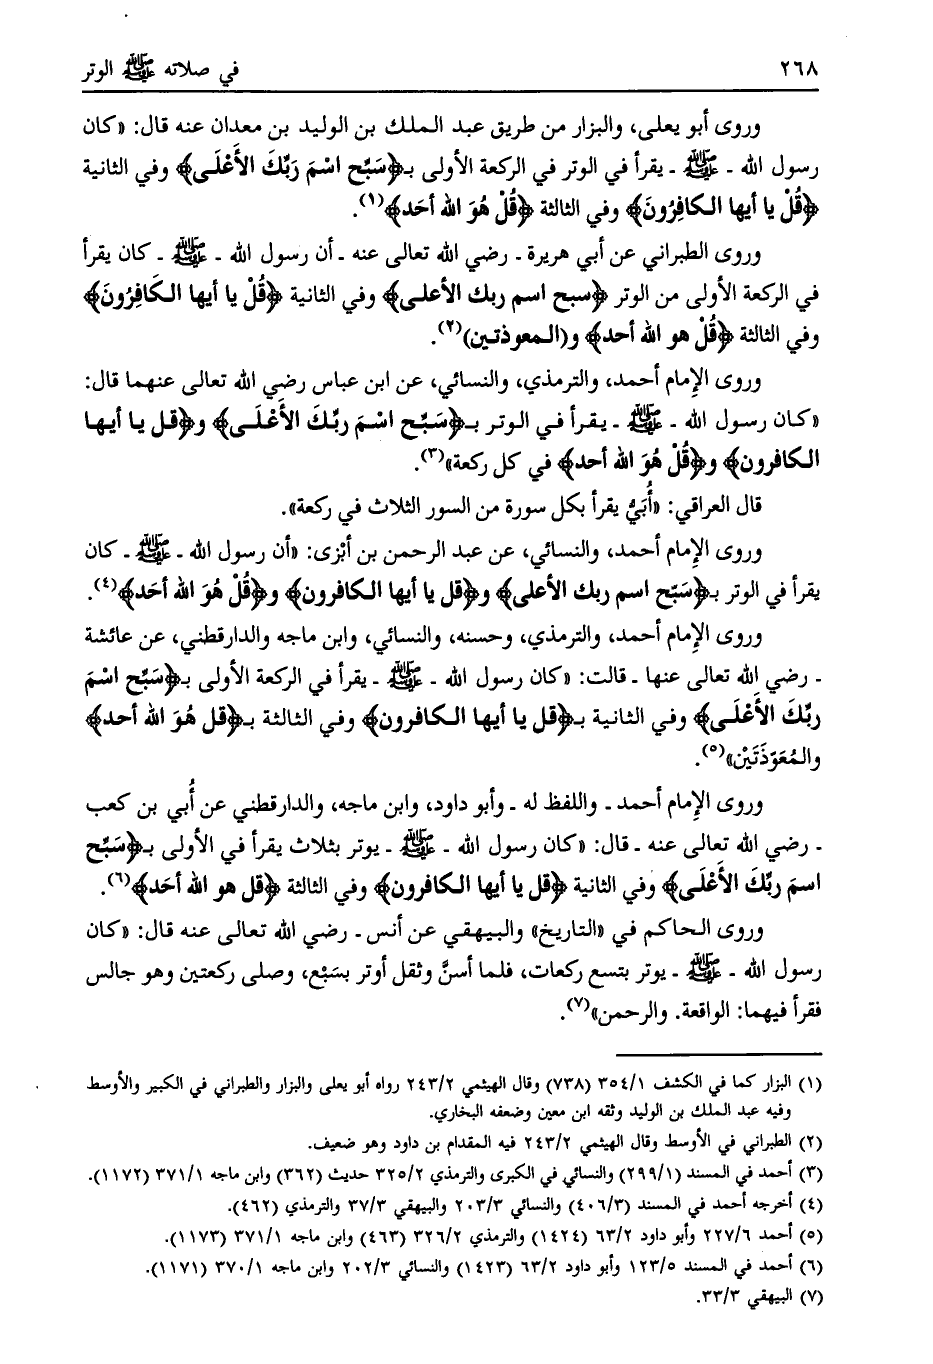 ٢٦٨
في صلاته ﷺ الوتر
وروى أبو يعلى، والبزار من طريق عبد الملك بن الوليد بن معدان عنه قال: «كان
رسول الله ـ ﷺ ـ يقرأ في الوتر في الركعة الأولى بـ﴿سَبِّح اسْمَ رَبِّكَ الأَعْلَى﴾ وفي الثانية
﴿قُلْ يا أيها الكافِرُونَ﴾ وفي الثالثة ﴿قُلْ هُوَ الله أحَد﴾(١).
وروى الطبراني عن أبي هريرة ـ رضي الله تعالى عنه ـ أن رسول الله ـ ﷺ ـ كان يقرأ
في الركعة الأولى من الوتر ﴿سبح اسم ربك الأعلى﴾ وفي الثانية ﴿قُلْ يا أيها الكَافِرُونَ﴾
وفي الثالثة ﴿قُلْ هو الله أحد﴾ و(المعوذتين)(٢).
وروى الإمام أحمد، والترمذي، والنسائي، عن ابن عباس رضي الله تعالى عنهما قال:
«كان رسول الله ـ ﷺ ـ يقرأ في الوتر بـ﴿سَبِّح اسْمَ ربِّكَ الأَعْلَى﴾ و﴿قل يا أيها
الكافرون﴾ و﴿قُلْ هُوَ الله أحد﴾ في كل ركعة»(٣).
قال العراقي: «أُبَيُّ يقرأ بكل سورة من السور الثلاث في ركعة».
وروى الإمام أحمد، والنسائي، عن عبد الرحمن بن أبْزى: «أن رسول الله ـ ﷺ ـ كان
يقرأ في الوتر بـ﴿سَبّح اسم ربك الأعلى﴾ و﴿قل يا أيها الكافرون﴾ و﴿قُلْ هُوَ الله أحَد﴾(٤).
وروى الإمام أحمد، والترمذي، وحسنه، والنسائي، وابن ماجه والدارقطني، عن عائشة
ـ رضي الله تعالى عنها ـ قالت: «كان رسول الله ـ ﷺ ـ يقرأ في الركعة الأولى بـ﴿سَبِّح اسْمَ
ربِّكَ الأَعْلَى﴾ وفي الثانية بـ﴿قل يا أيها الكافرون﴾ وفي الثالثة بـ﴿قل هُوَ الله أحد﴾
والمُعَوّذَتَيْن»(٥).
وروى الإمام أحمد ـ واللفظ له ـ وأبو داود، وابن ماجه، والدارقطني عن أُبي بن كعب
ـ رضي الله تعالى عنه ـ قال: «كان رسول الله ـ ﷺ ـ يوتر بثلاث يقرأ في الأولى بـ﴿سَبِّح
اسمَ ربِّكَ الأَعْلَى﴾ وفي الثانية ﴿قل يا أيها الكافرون﴾ وفي الثالثة ﴿قل هو الله أحَد﴾(٦).
وروى الحاكم في «التاريخ» والبيهقي عن أنس ـ رضي الله تعالى عنه قال: «كان
رسول الله ـ ﷺ ـ يوتر بتسع ركعات، فلما أسنَّ وثقل أوتر بسَبْع، وصلى ركعتين وهو جالس
فقرأ فيهما: الواقعة. والرحمن»(٧).
(١) البزار كما في الكشف ٣٥٤/١ (٧٣٨) وقال الهيثمي ٢٤٣/٢ رواه أبو يعلى والبزار والطبراني في الكبير والأوسط
وفيه عبد الملك بن الوليد وثقه ابن معين وضعفه البخاري.
(٢) الطبراني في الأوسط وقال الهيثمي ٢٤٣/٢ فيه المقدام بن داود وهو ضعيف.
(٣) أحمد في المسند (٢٩٩/١) والنسائي في الكبرى والترمذي ٣٢٥/٢ حديث (٣٦٢) وابن ماجه ٣٧١/١ (١١٧٢).
(٤) أخرجه أحمد في المسند (٤٠٦/٣) والنسائي ٢٠٣/٣ والبيهقي ٣٧/٣ والترمذي (٤٦٢).
(٥) أحمد ٢٢٧/٦ وأبو داود ٦٣/٢ (١٤٢٤) والترمذي ٣٢٦/٢ (٤٦٣) وابن ماجه ٣٧١/١ (١١٧٣).
(٦) أحمد في المسند ١٢٣/٥ وأبو داود ٦٣/٢ (١٤٢٣) والنسائي ٢٠٢/٣ وابن ماجه ٣٧٠/١ (١١٧١).
(٧) البيهقي ٣٣/٣.